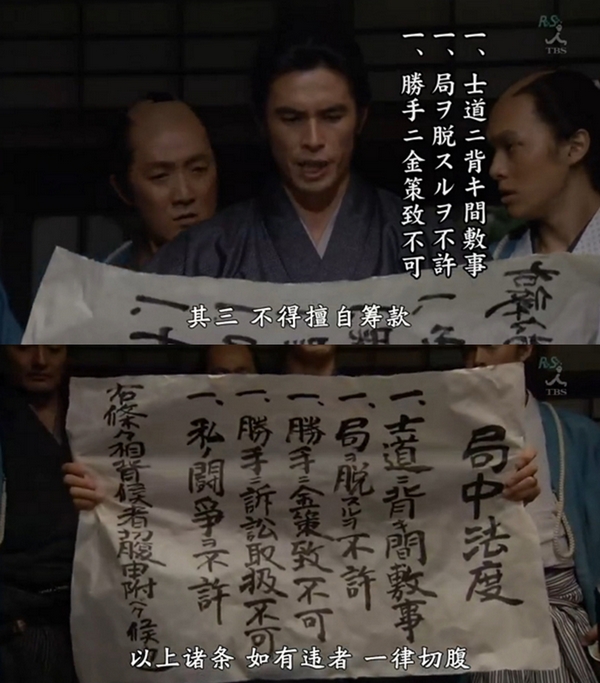 TBS
一、士道ニ背キ間敷事
一、局ヲ脱スルヲ不許
一、勝手ニ金策致不可
其三 不得擅自筹款
TBS
局中法度
一、士道ニ背キ間敷事
一、局ヲ脱スルヲ不許
一、勝手ニ金策致不可
一、勝手ニ訴訟取扱不可
一、私ノ闘争ヲ不許
右條々相背候者切腹申附ベク候
以上诸条 如有违者 一律切腹